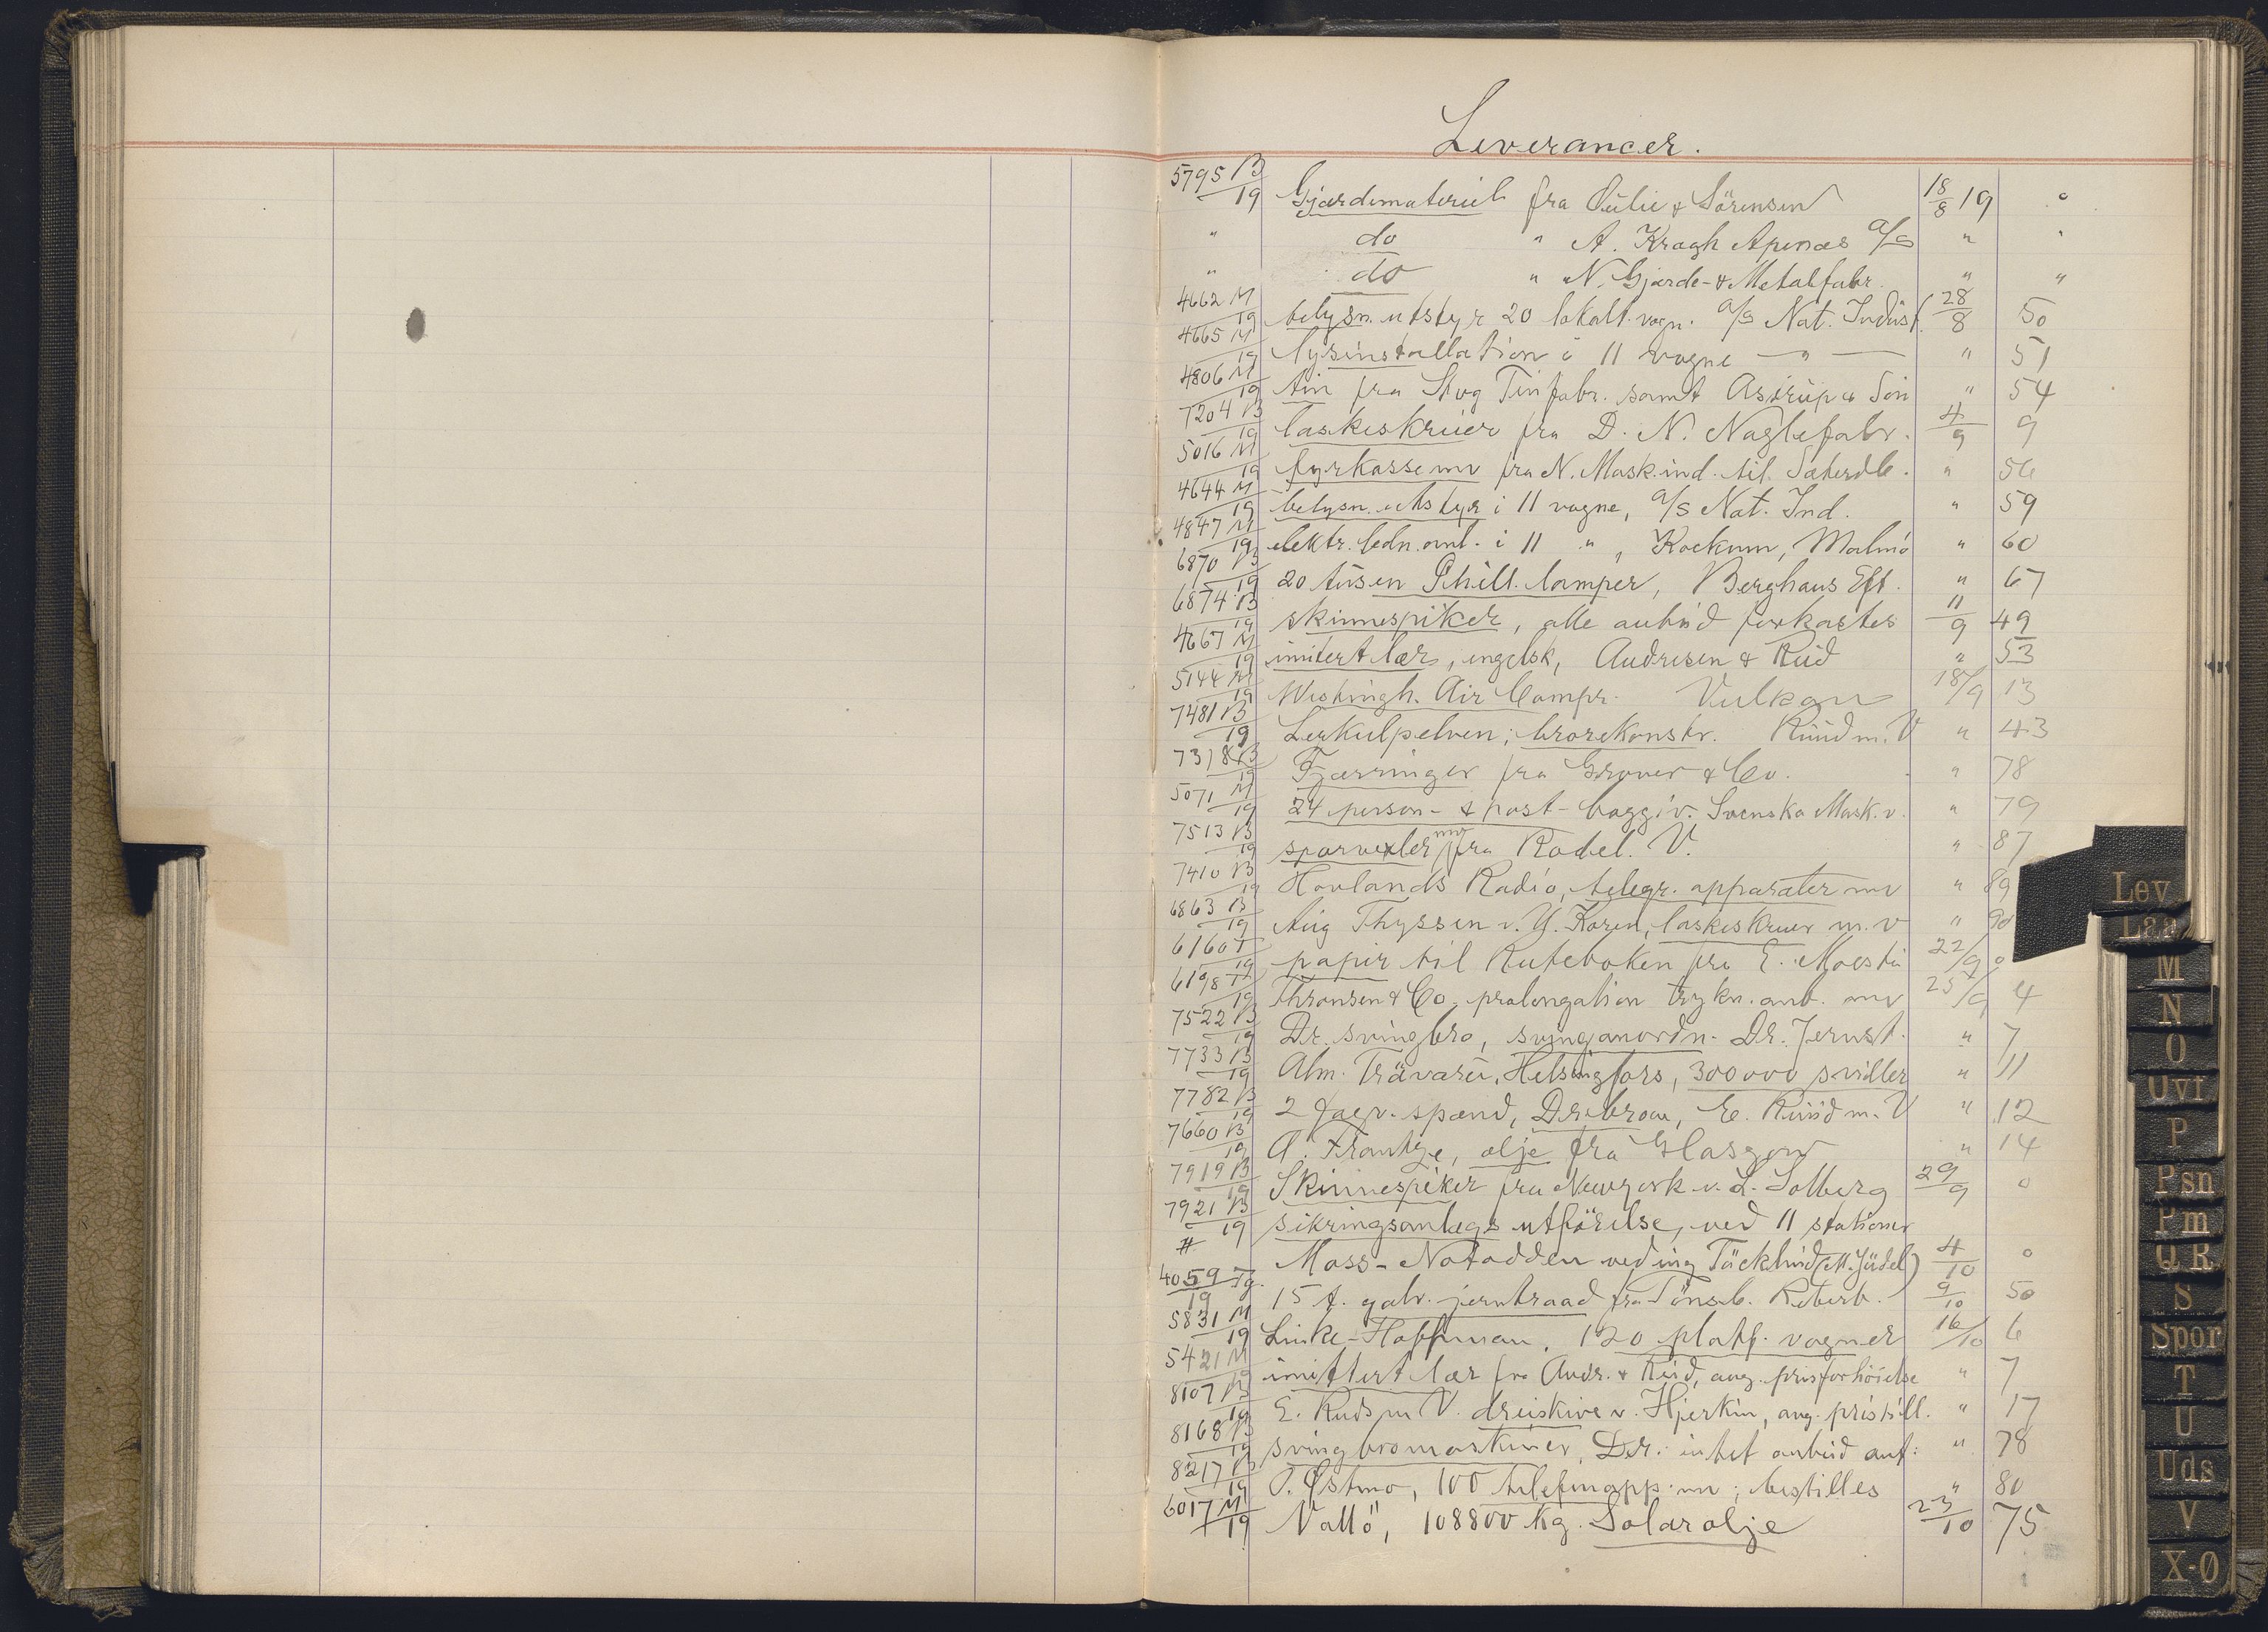 Leverancer.
5795 B/19 Gjærdemateriel fra Sørensen 18/8 19 0
" do " A. Kragh Apenæs A/S " "
" do " N. Gjærde- & Metalfabr. " "
4662 M/19 belysn. utstyr 20 lokalt. vogn. A/S Nat. Indust. 28/8 50
4665 M/19 lysinstallation i 11 vogne — " — " 51
4806 M/19 tin fra Skog Tinfabr. samt Astrup & Søn " 54
7204 B/19 laskeskruer fra D. N. Naglefabr. 4/9 9
5016 M/19 fyrkasse mv fra N. Mask.ind. til Sæterdb. " 56
4644 M/19 belysn. utstyr i 11 vogne, A/S Nat. Ind. " 59
4847 M/19 elektr. ledn. anl. i 11 " , Kockum, Malmö " 60
6870 B/19 20 tusen Phill. lamper, Berghaus Eft. " 67
6874 B/19 skinnespiker, alle anbud forkastes 11/9 49
4667 M/19 imitert lær, engelsk, Andresen & Ruud " 53
5144 M/19 Westingh. Air Compr. Vulkan 18/9 13
7481 B/19 Lerkulpelven; brorekonstr. Ruud m. V " 43
7318 B/19 Fjærringer fra Grøner & Co. " 78
5071 M/19 24 person- & post- boggiv. Svenska Mask. v. " 79
7513 B/19 sporvexler mv fra Rodel. V. " 87
7410 B/19 Hovlands Radio, telegr. apparater mv " 89
6863 B/19 Aug Thyssen v. G. Koren, laskeskruer m. v " 90
6160 T/19 papir til Ruteboken fra E. Moestü 22/9 0
6198 T/19 Thronsen & Co, prolongation trykn. anb. mv 25/9 4
7522 B/19 Dr. svingbro, svinganordn. Dr. Jernst. " 7
7733 B/19 Alm. Trävaru, Helsingfors, 300000 sviller " 11
7782 B/19 2 fagv. spænd, Dr.broen, E. Ruud m. V " 12
7660 B/19 A. Frantze, olje fra Glasgow " 14
7919 B/19 Skinnespiker fra Newyork v. L. Solberg 29/9 0
7921 B/19 sikringsanlegs utførelse, ved 11 stationer
# Moss - Notodden ved ing Täcklind (M. Jüdel) 4/10 0
4059 Tg./19 15 t. galv. jerntraad fra Tønsb. Reberb. 9/10 50
5831 M/19 Linke-Hoffman, 120 platf. vogner 16/10 6
5421 M/19 imittert lær fra Andr. & Ruud, ang. prisforhöielse " 7
8107 B/19 E. Ruds m V. dreiskive v. Hjerkin, ang. pristill. " 17
8168 B/19 svingbromaskiner, Dr. intet anbud ant: " 78
8217 B/19 O. Østmo, 100 telefonapp. mv; bestilles " 80
6017 M/19 Vallö, 108800 kg. Solarolje 23/10 75
Lev.
Laa
M
N
O
Ovf
P
Psn
Pm
Q R
S
Spor
T
U
Uds
V
X-Ø